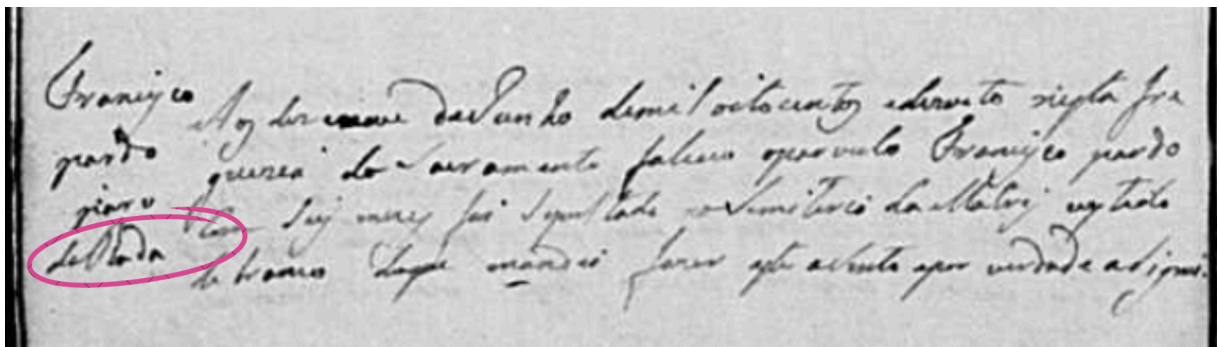 Francisco
pardo
parv
de Roda
Aos dezenove de Junho de mil oitocentos e dezoito nesta Fre
guezia do Sacramento faleceo o parvulo Francisco pardo
Seis mezes foi Sepultado no Semiterio da Matris vestido
de branco do que mandei fazer este acento e por verdade asignei.